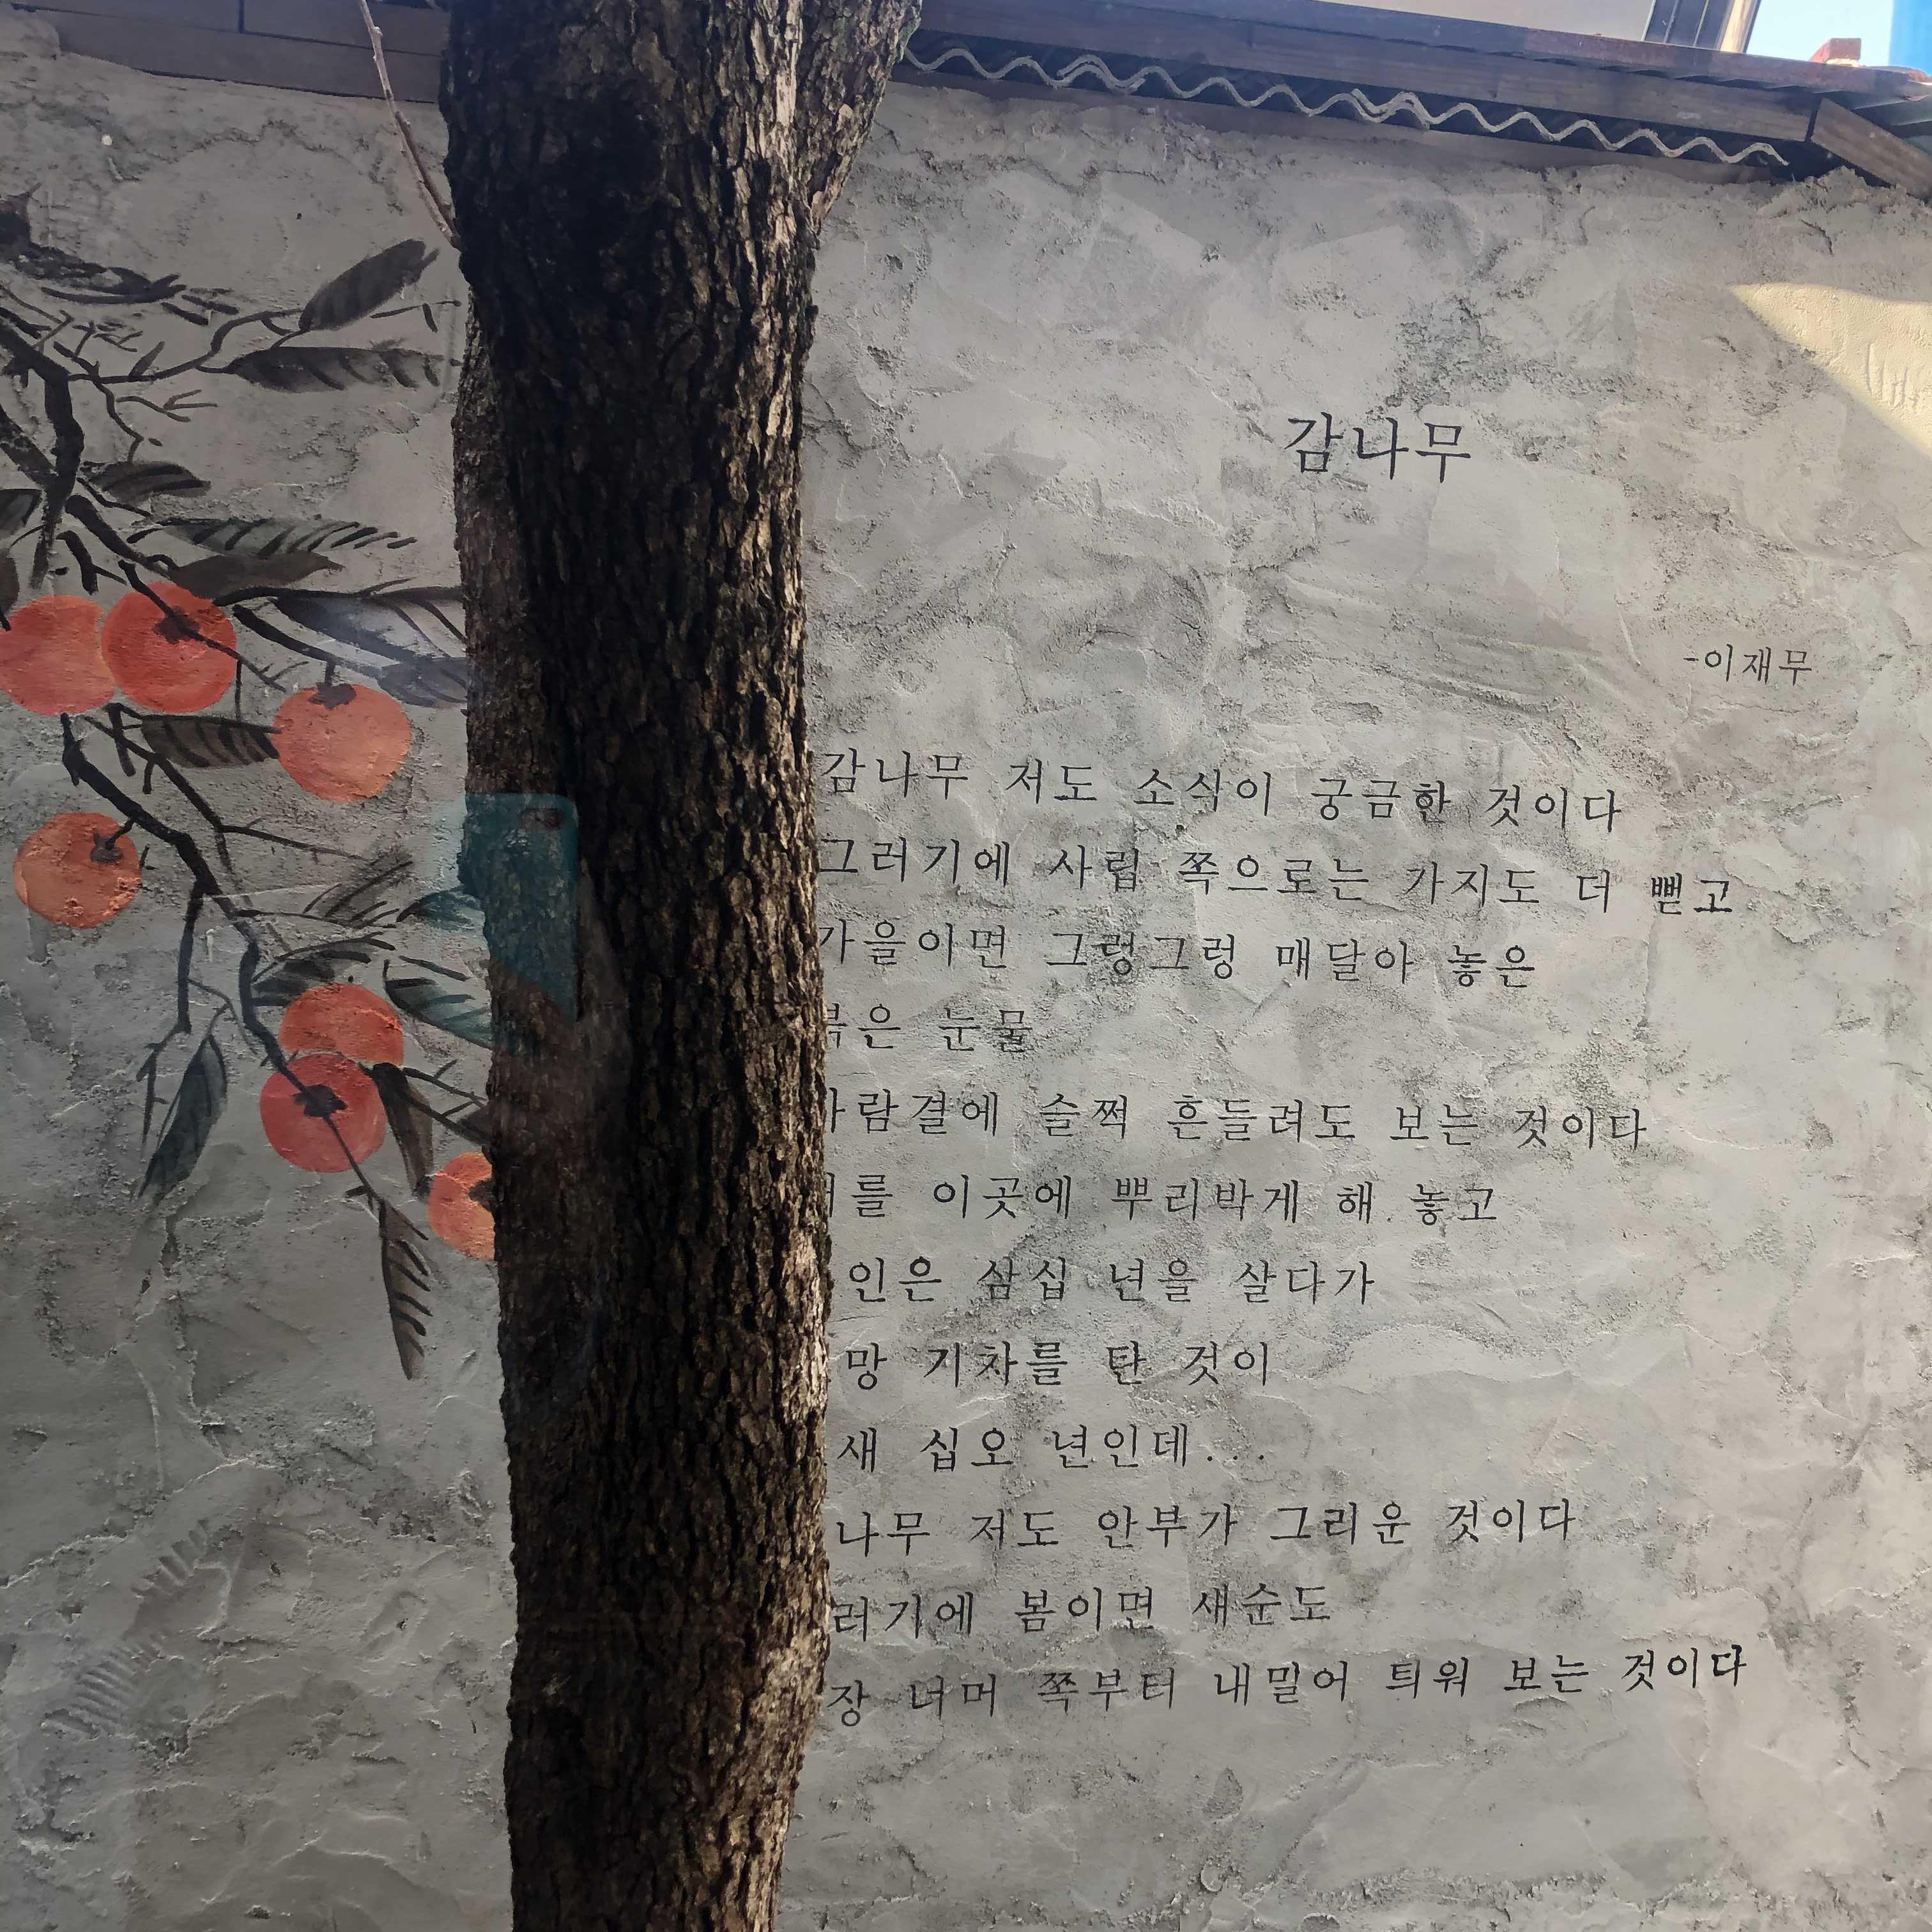 감나무
-이재무
감나무 저도 소식이 궁금한 것이다
그러기에 사립 쪽으로는 가지도 더 뻗고
가을이면 그렁그렁 매달아 놓은
붉은 눈물
바람결에 슬쩍 흔들려도 보는 것이다
저를 이곳에 뿌리박게 해 놓고
인은 삼십 년을 살다가
망 기차를 탄 것이
새 십오 년인데...
나무 저도 안부가 그리운 것이다
러기에 봄이면 새순도
장 너머 쪽부터 내밀어 틔워 보는 것이다